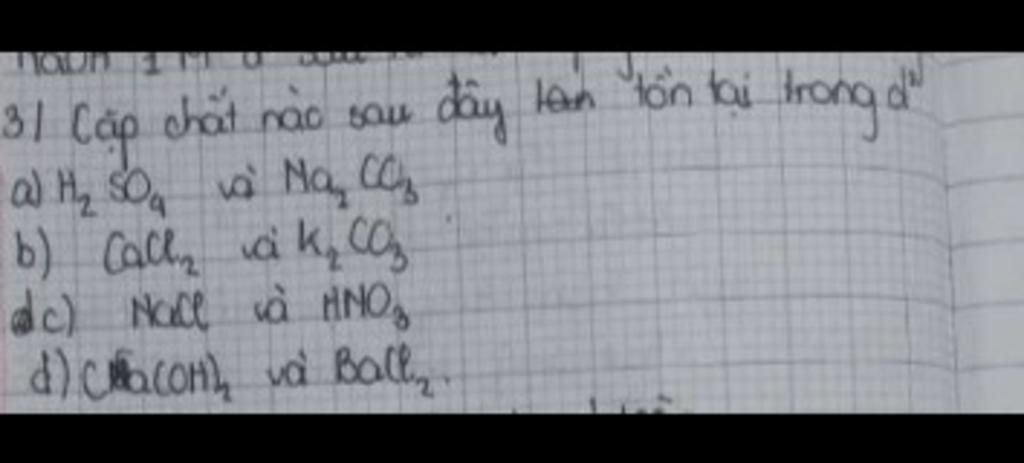 3/ Cặp chất nào sau đây tồn tại trong d²
a) H₂SO₄ và Na₂CO₃
b) CaCl₂ và K₂CO₃
c) NaCl và HNO₃
d) Ca(OH)₂ và BaCl₂.